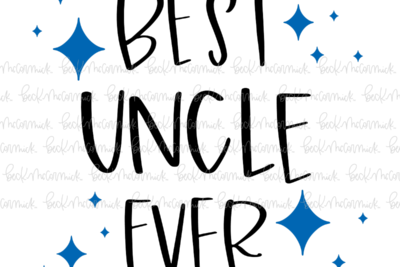 BEST
UNCLE
EVER